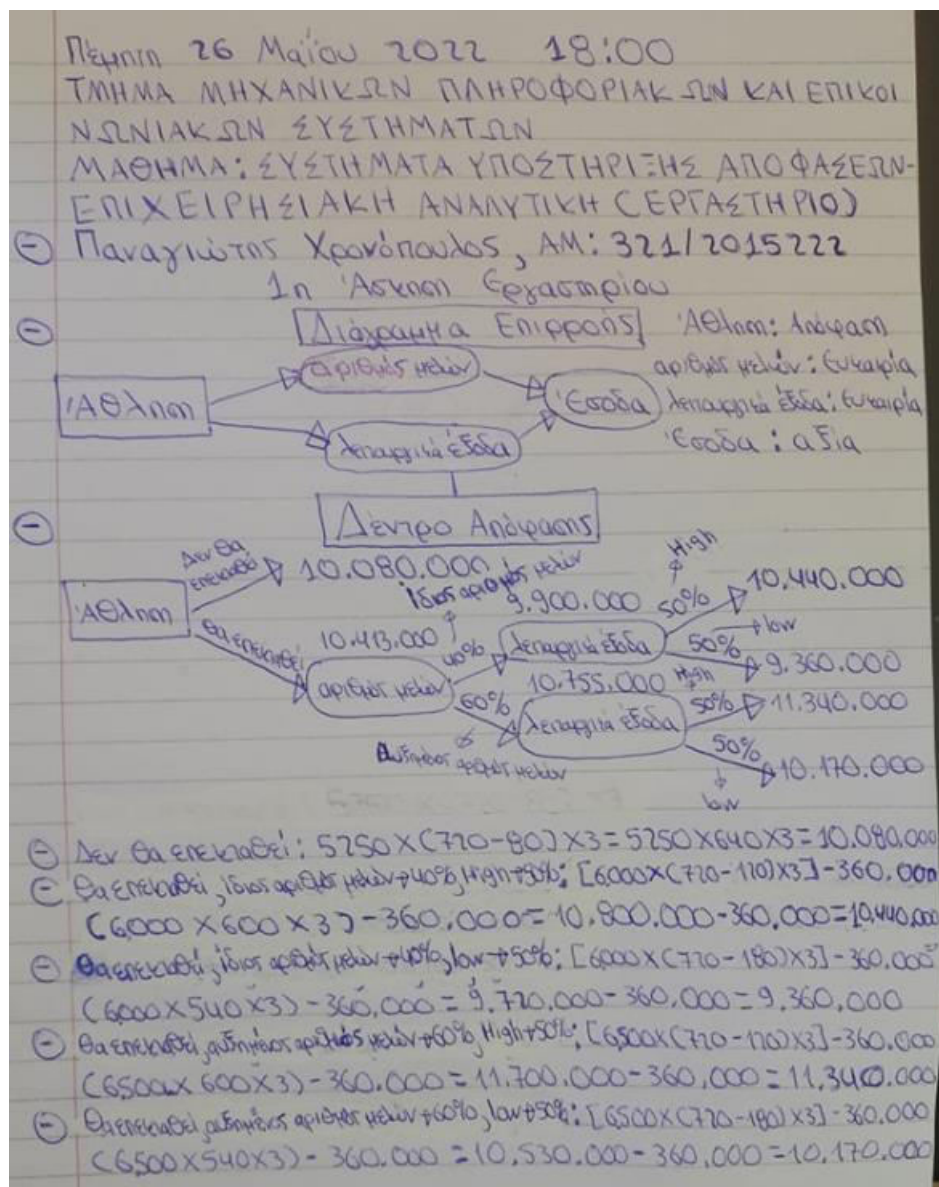 Πέμπτη 26 Μαΐου 2022 18:00
ΤΜΗΜΑ ΜΗΧΑΝΙΚΩΝ ΠΛΗΡΟΦΟΡΙΑΚΩΝ ΚΑΙ ΕΠΙΚΟΙ
ΝΩΝΙΑΚΩΝ ΣΥΣΤΗΜΑΤΩΝ
ΜΑΘΗΜΑ: ΣΥΣΤΗΜΑΤΑ ΥΠΟΣΤΗΡΙΞΗΣ ΑΠΟΦΑΣΕΩΝ-
ΕΠΙΧΕΙΡΗΣΙΑΚΗ ΑΝΑΛΥΤΙΚΗ (ΕΡΓΑΣΤΗΡΙΟ)
Παναγιώτης Χρονόπουλος, ΑΜ: 321/2015222
1η Άσκηση Εργαστηρίου
Διάγραμμα Επιρροής
Άθληση: Απόφαση
αριθμός μελών: Ευκαιρία
λειτουργικά έξοδα: Ευκαιρία
Έσοδα: αξία
Άθληση
αριθμός μελών
λειτουργικά έξοδα
Έσοδα
Δέντρο Απόφασης
Άθληση
Δεν θα
επεκταθεί
10.080.000
Θα επεκταθεί
10.413.000
αριθμός μελών
ίδιος αριθμός μελών
40%
9.900.000
λειτουργικά έξοδα
High
50%
10.440.000
50%
low
9.360.000
60%
Αυξημένος αριθμός μελών
10.755.000
λειτουργικά έξοδα
High
50%
11.340.000
50%
low
10.170.000
Δεν θα επεκταθεί: 5250X(720-80)X3=5250X640X3=10.080.000
Θα επεκταθεί, ίδιος αριθμός μελών→40%, High→50%: [6000X(720-120)X3]-360.000
(6000X600X3)-360.000=10.800.000-360.000=10.440.000
Θα επεκταθεί, ίδιος αριθμός μελών→40%, low→50%: [6000X(720-180)X3]-360.000=
(6000X540X3)-360.000=9.720.000-360.000=9.360.000
Θα επεκταθεί, αυξημένος αριθμός μελών→60%, High→50%: [6500X(720-120)X3]-360.000
(6500X600X3)-360.000=11.700.000-360.000=11.340.000
Θα επεκταθεί, αυξημένος αριθμός μελών→60%, low→50%: [6500X(720-180)X3]-360.000
(6500X540X3)-360.000=10.530.000-360.000=10.170.000